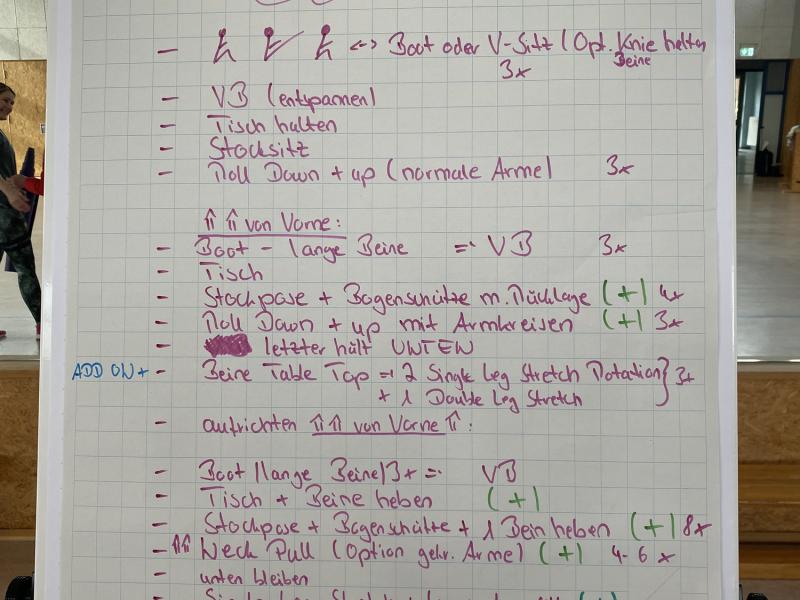 - <-> Boot oder V-Sitz (Opt. Knie halten
Beine
3x
- VB (entspannen)
- Tisch halten
- Stocksitz
- Roll Down + up (normale Arme) 3x
⇑ ⇑ von Vorne:
- Boot - lange Beine => VB 3x
- Tisch
- Stockpose + Bogenschütze m. Rücklage (+) 4x
- Roll Down + up mit Armkreisen (+) 3x
- letzter hält UNTEN
ADD ON + - Beine Table Top => 2 Single Leg Stretch Rotation } 3x
+ 1 Double Leg Stretch
- aufrichten ⇑⇑ von Vorne ⇑:
- Boot (lange Beine) 3x => VB
- Tisch + Beine heben (+)
- Stockpose + Bogenschütze + 1 Bein heben (+) 8x
- ⇑⇑ Neck Pull (Option gekr. Arme) (+) 4-6 x
- unten bleiben